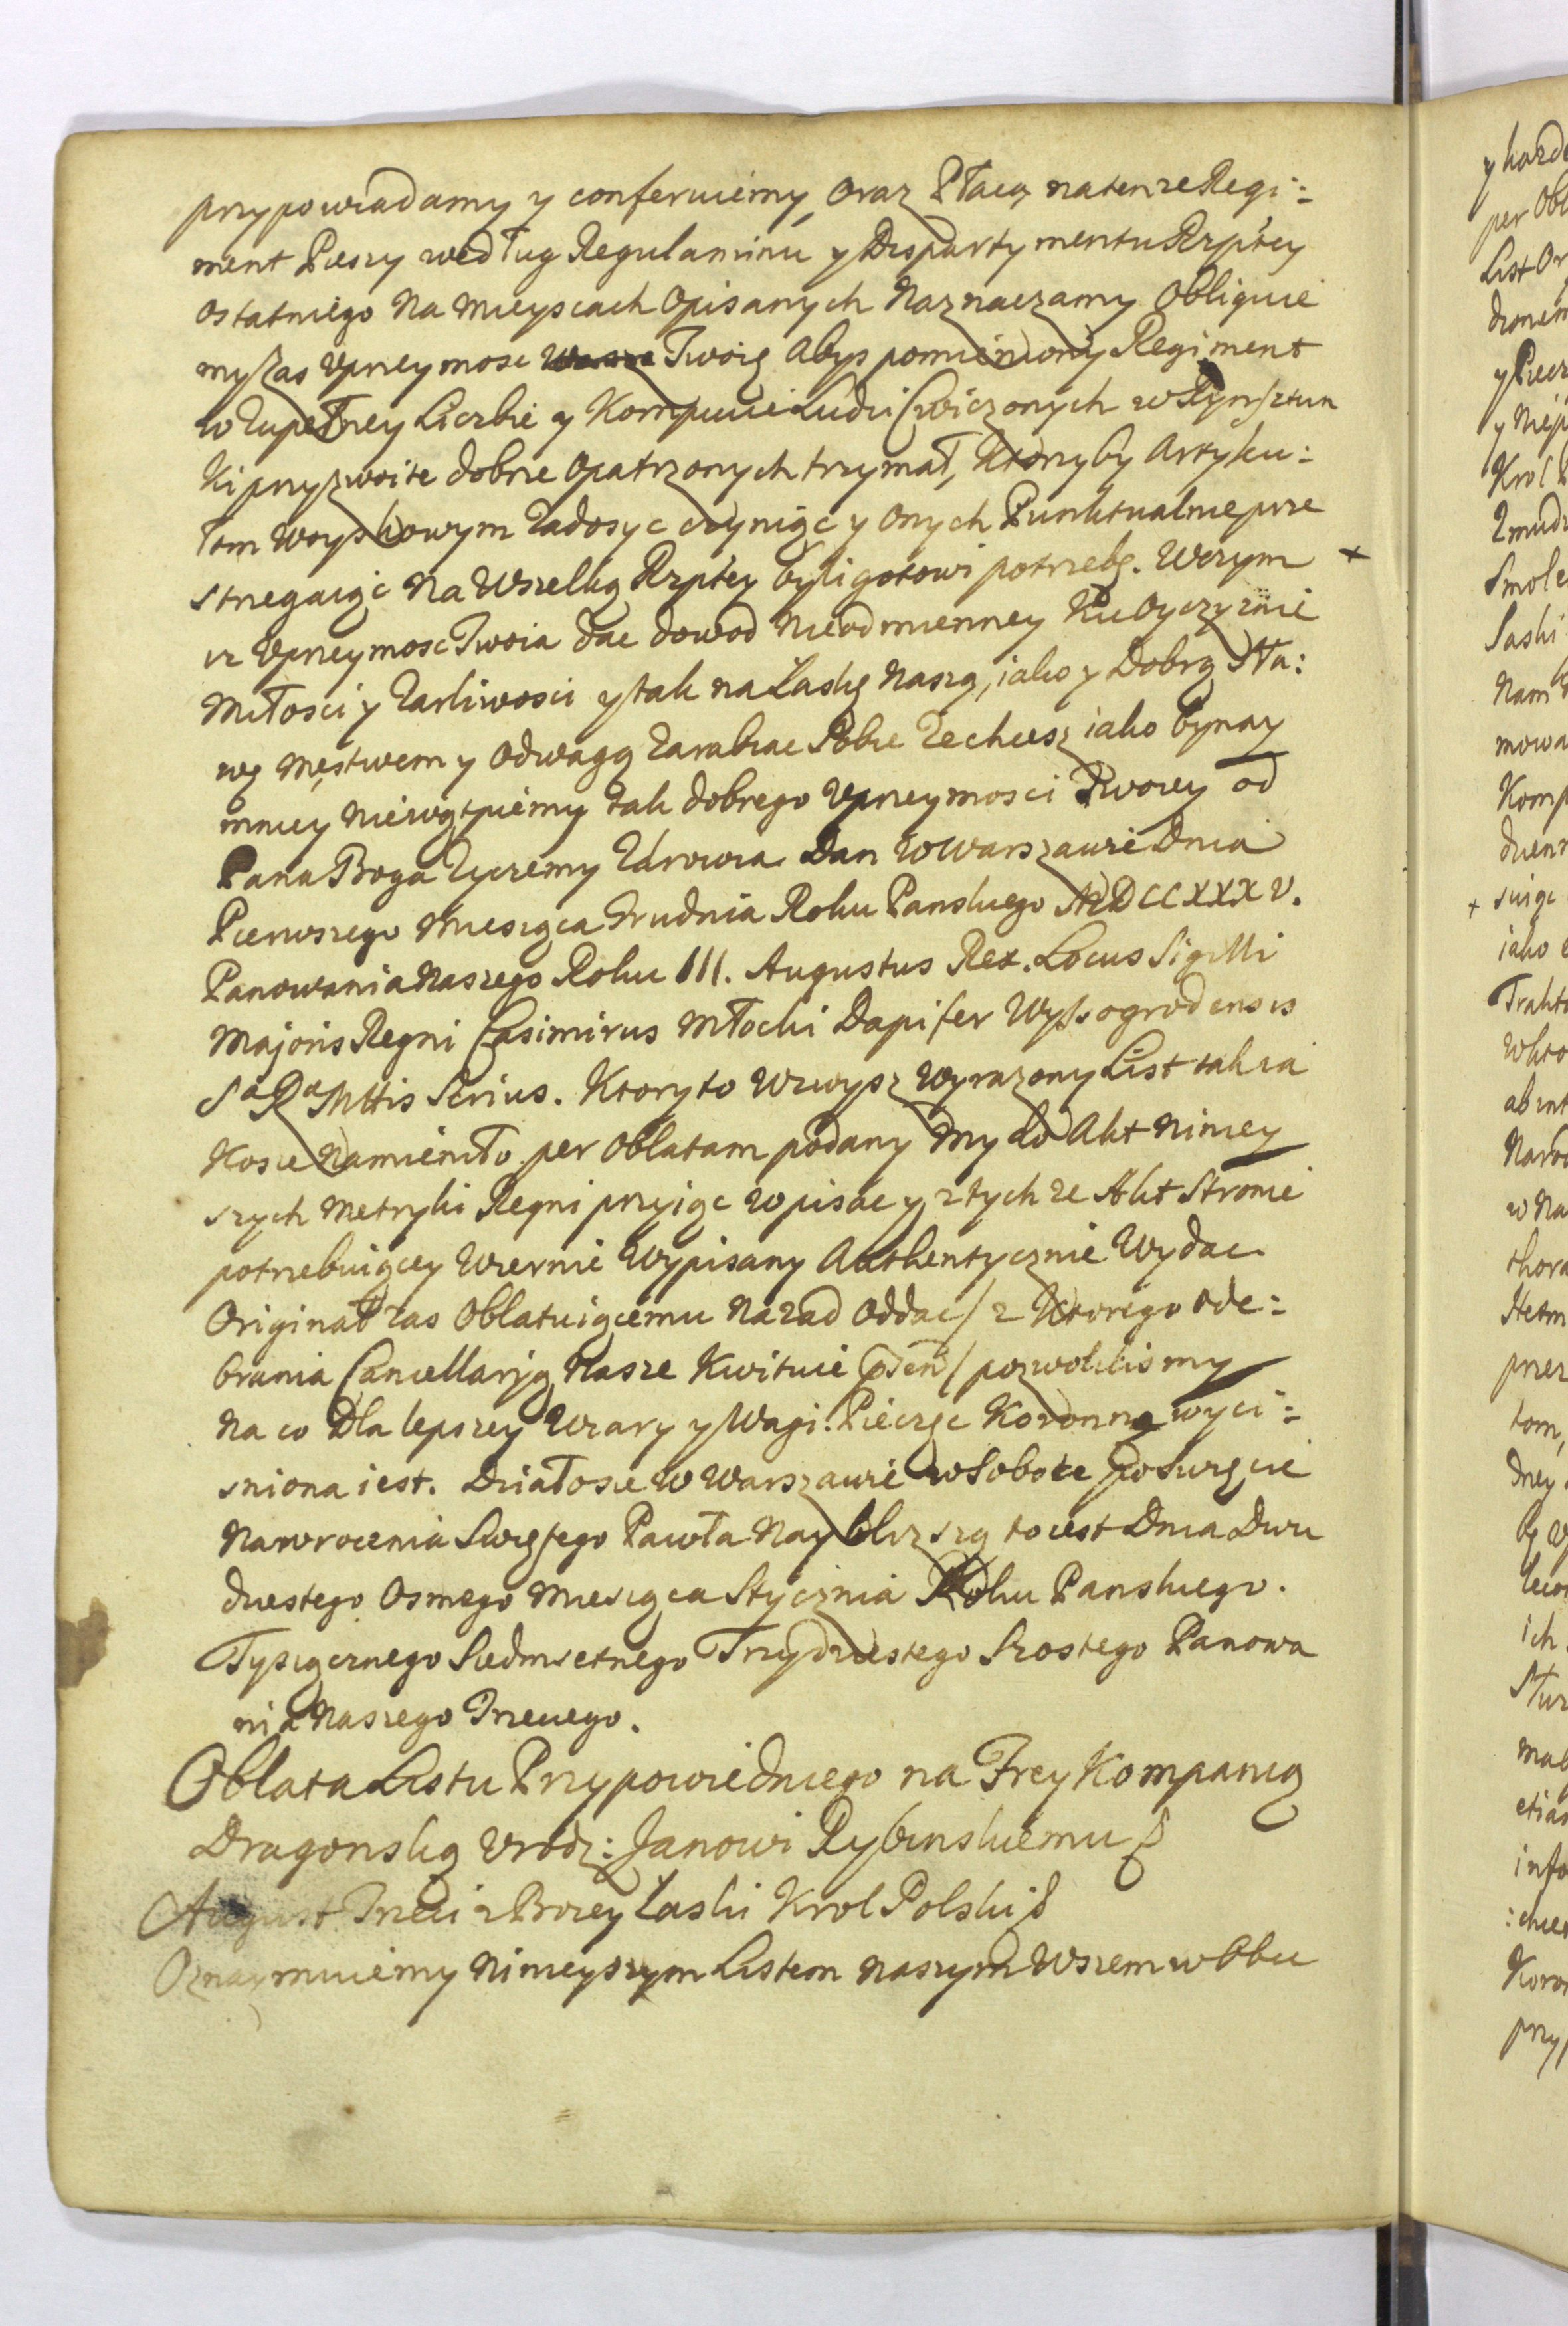 przypowiadamy y conferuiemy, oraz Płacą natenze Regi:
ment Pieszy według Regulaminu y Dispartymentu Rzptey
ostatniego Na Mieyscach Opisanych Naznaczamy Obliguie
my zas Vprzeymosc Twoię Abys pomieniony Regiment
w Zupełney Liczbie y Kompucie Ludzi Cwiczonych w Rynsztun
ki przyzwoite dobrze Opatrzonych trzymał, Ktory by Artyku:
łom Woyskowym Zadosyc czyniąc y Onych Punktualnie prze
strzegaiąc Na Wszelką Rzptey byli gotowi potrzebę. Wczym +
iz Vprzeymosc Twoia dac dowod Nieodmienney Ku Oyczyznie
Miłosci y Zarliwosci y tak na Łaskę Naszą, iako y Dobrą Sła:
wę Męstwem y Odwagą Zarabiac Sobie Zechcesz iako bynay
mniey Niewątpiemy tak dobrego Vprzeymosci Twoiey od
Pana Boga Zyczemy Zdrowia Dan w Warszawie Dnia
Pierwszego Miesiąca Grudnia Roku Panskiego MDCCXXXV.
Panowania Naszego Roku III. Augustus Rex. Locus Sigilli
Majoris Regni Casimirus Młocki Dapifer Wyssogrodensis
Sa Ra Mttis Scrius. Ktory to Wzwysz Wyrazony List takia
Kosie Namieniło per Oblatam podany My do Akt Niniey
szych Metryki Regni przyiąc Wpisac y z tych ze Akt Stronie
potrzebuiącey Wiernie Wypisany Authentycznie Wydac
Originał zas Oblatuiącemu Nazad Oddac / z Ktorego ode:
brania Cancellaryą Nasze Kwituie / pozwolilismy
Na co Dla lepszey Wiary y Wagi. Pieczęc Koronna wyci:
sniona iest. Działosie w Warszawie w Sobote po Swięcie
Nawrocenia Swiętego Pawła Nayblizszą to iest Dnia Dwu
dziestego Osmego Miesiąca Stycznia Roku Panskiego.
Tysiącznego Siedmsetnego Trzydziestego Szostego Panowa
nia Naszego Trzeciego.
Oblata Listu Przypowiedniego na Frey Kompanią
Dragonską Vrodz: Janowi Rybinskiemu
August Trzeci z Bozey Łaski Krol Polski
Oznaymuiemy Ninieyszym Listem Naszym Wszem w Obec